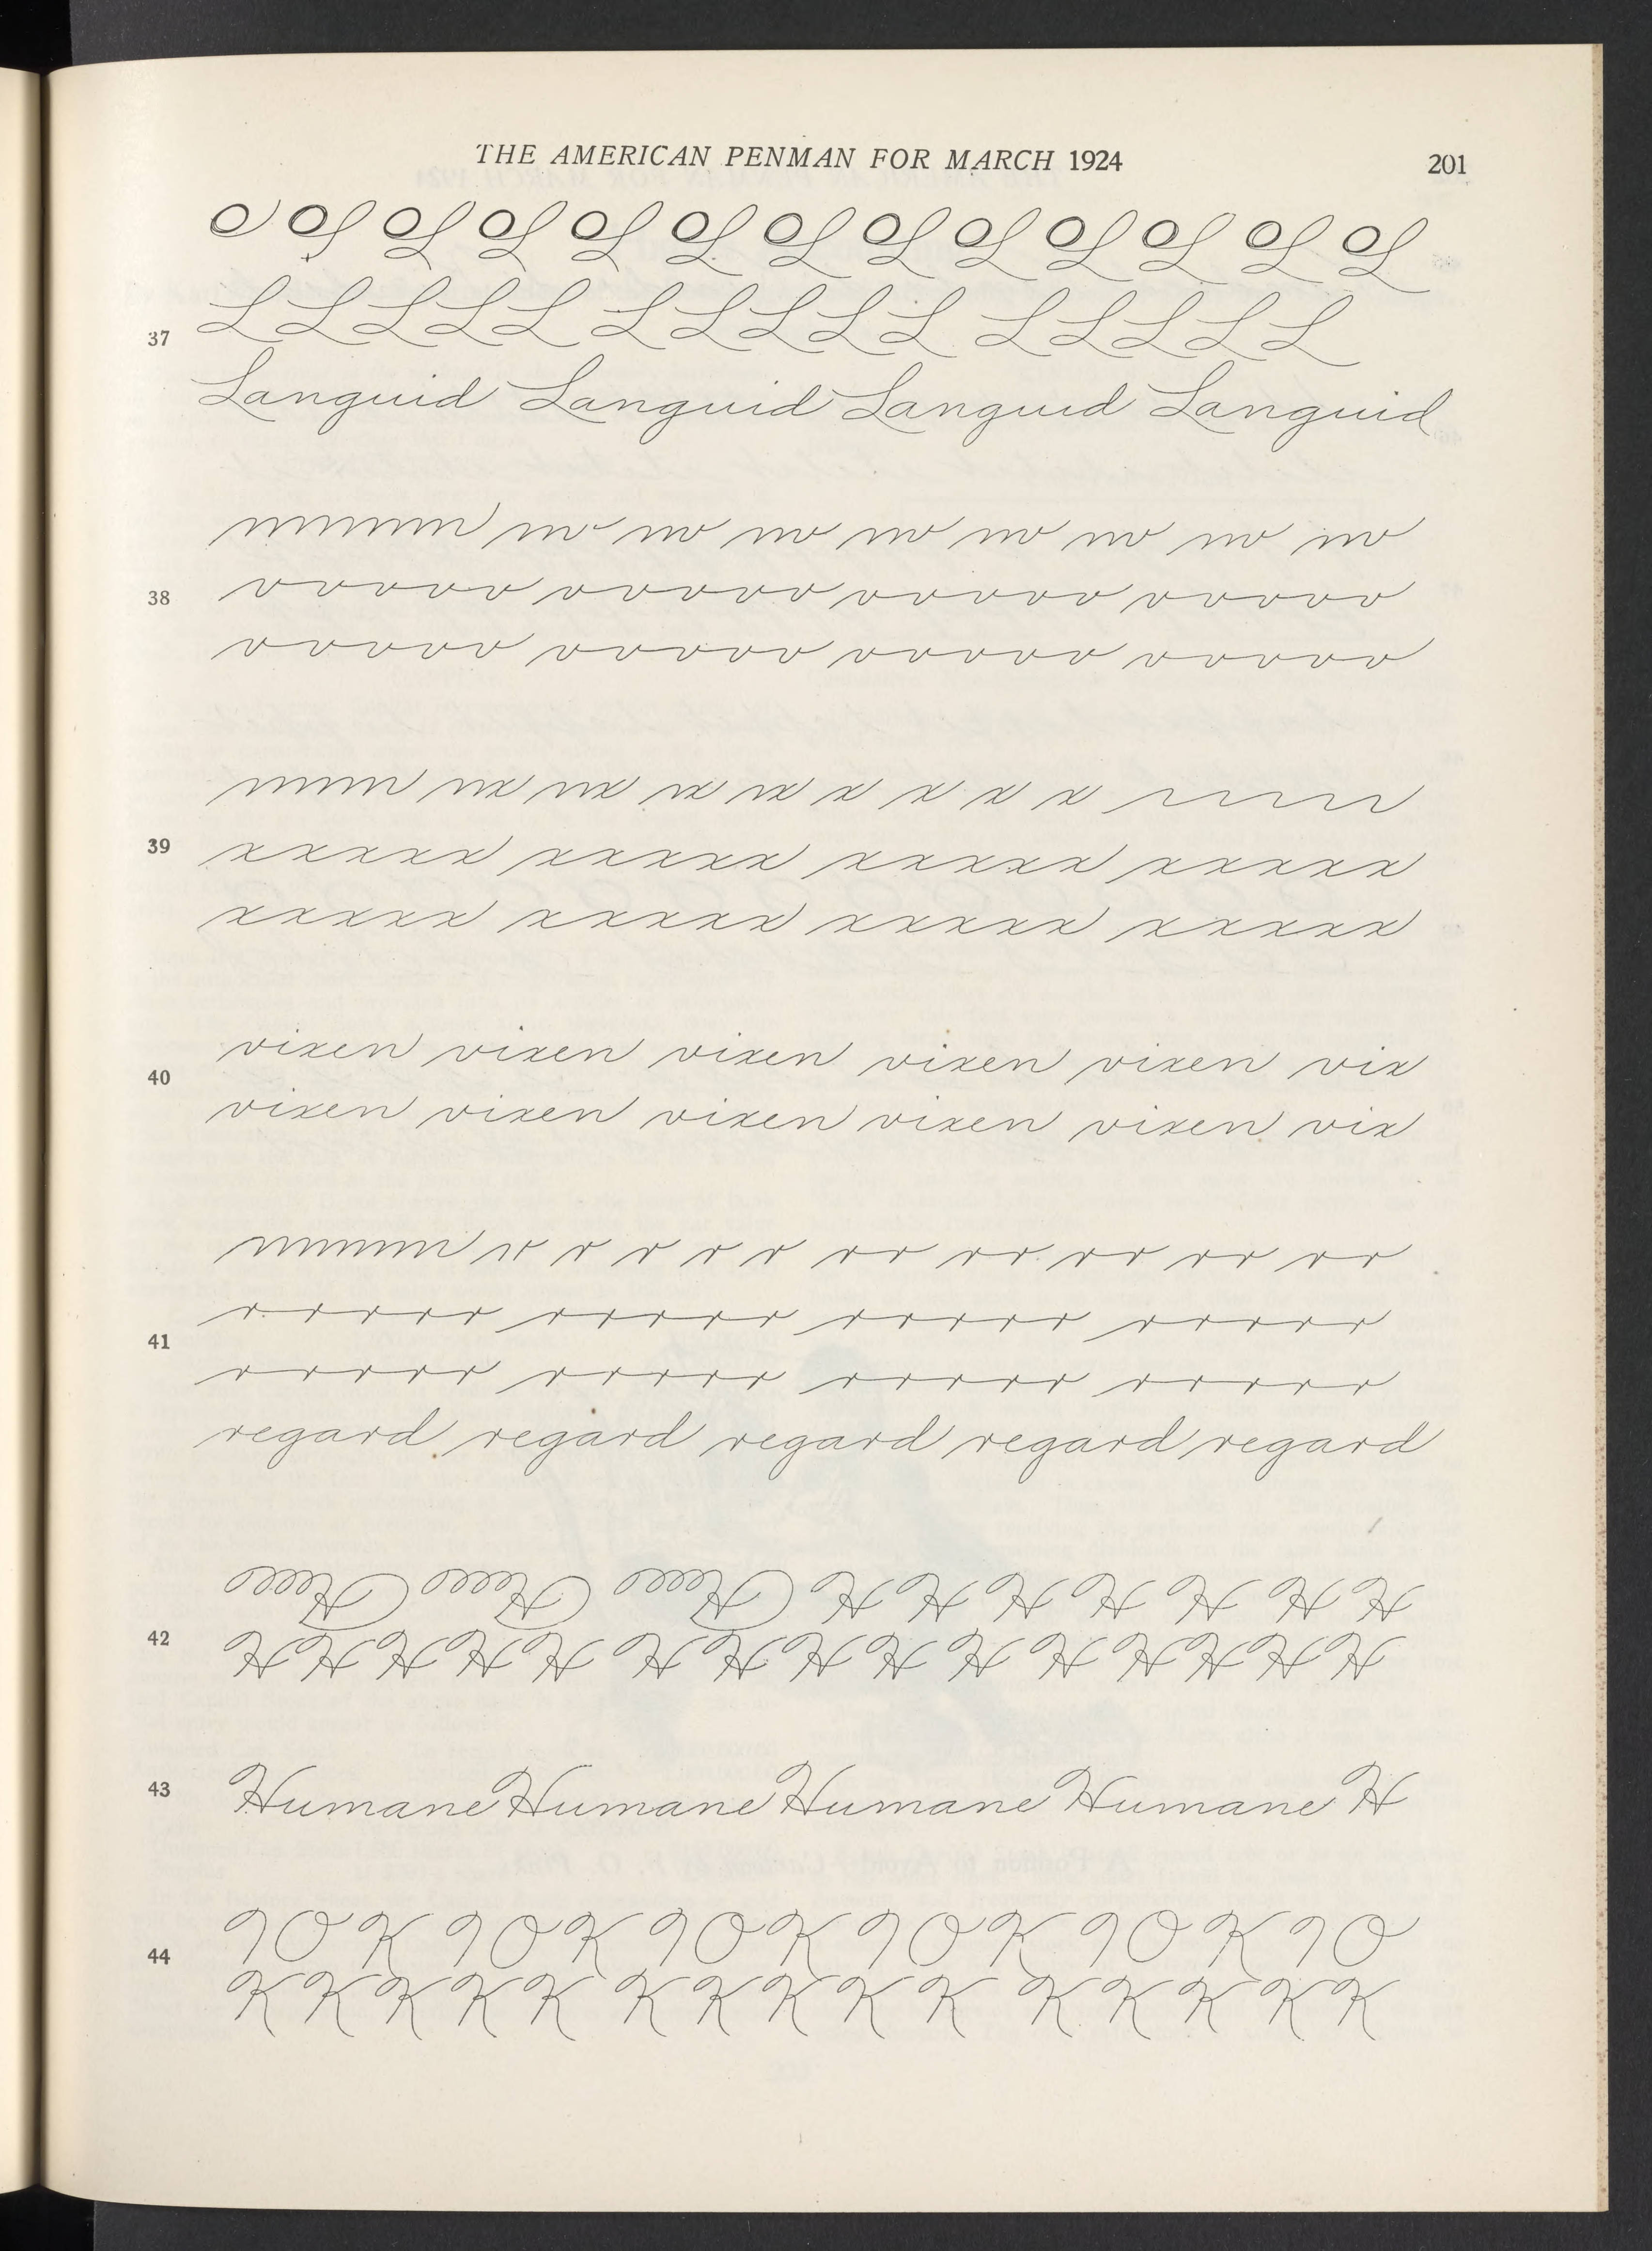 THE AMERICAN PENMAN FOR MARCH 1924 201
O OL OL OL OL OL OL OL OL OL OL OL OL
37 L L L L L L L L L L L L L L L
Languid Languid Languid Languid
mmmm nv nv nv nv nv nv nv nv
38 vvvvv vvvvv vvvvv vvvvv
vvvvv vvvvv vvvvv vvvvv
mmm nx nx nx nx x x x x
39 xxxxx xxxxx xxxxx xxxxx
xxxxx xxxxx xxxxx xxxxx
40 vixen vixen vixen vixen vixen vix
vixen vixen vixen vixen vixen vix
mmmm r r r r r rr rr rr rr rr
41 rrrrr rrrrr rrrrr rrrrr
rrrrr rrrrr rrrrr rrrrr
regard regard regard regard regard
H H H H H H H H H H
42 H H H H H H H H H H H H H H H
43 Humane Humane Humane Humane H
44 9 O K 9 O K 9 O K 9 O K 9 O K 9 O
K K K K K K K K K K K K K K K